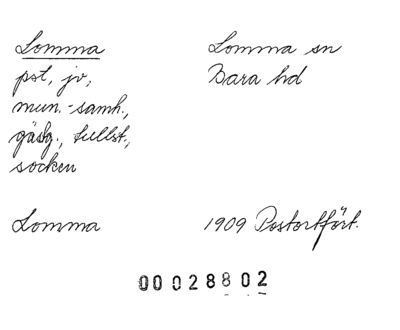 Lomma
Lomma sn
pst, jv,
Bara hd
mun.-samh.,
gäsg., tullst.,
socken
Lomma
1909 Postortfört.
00028802